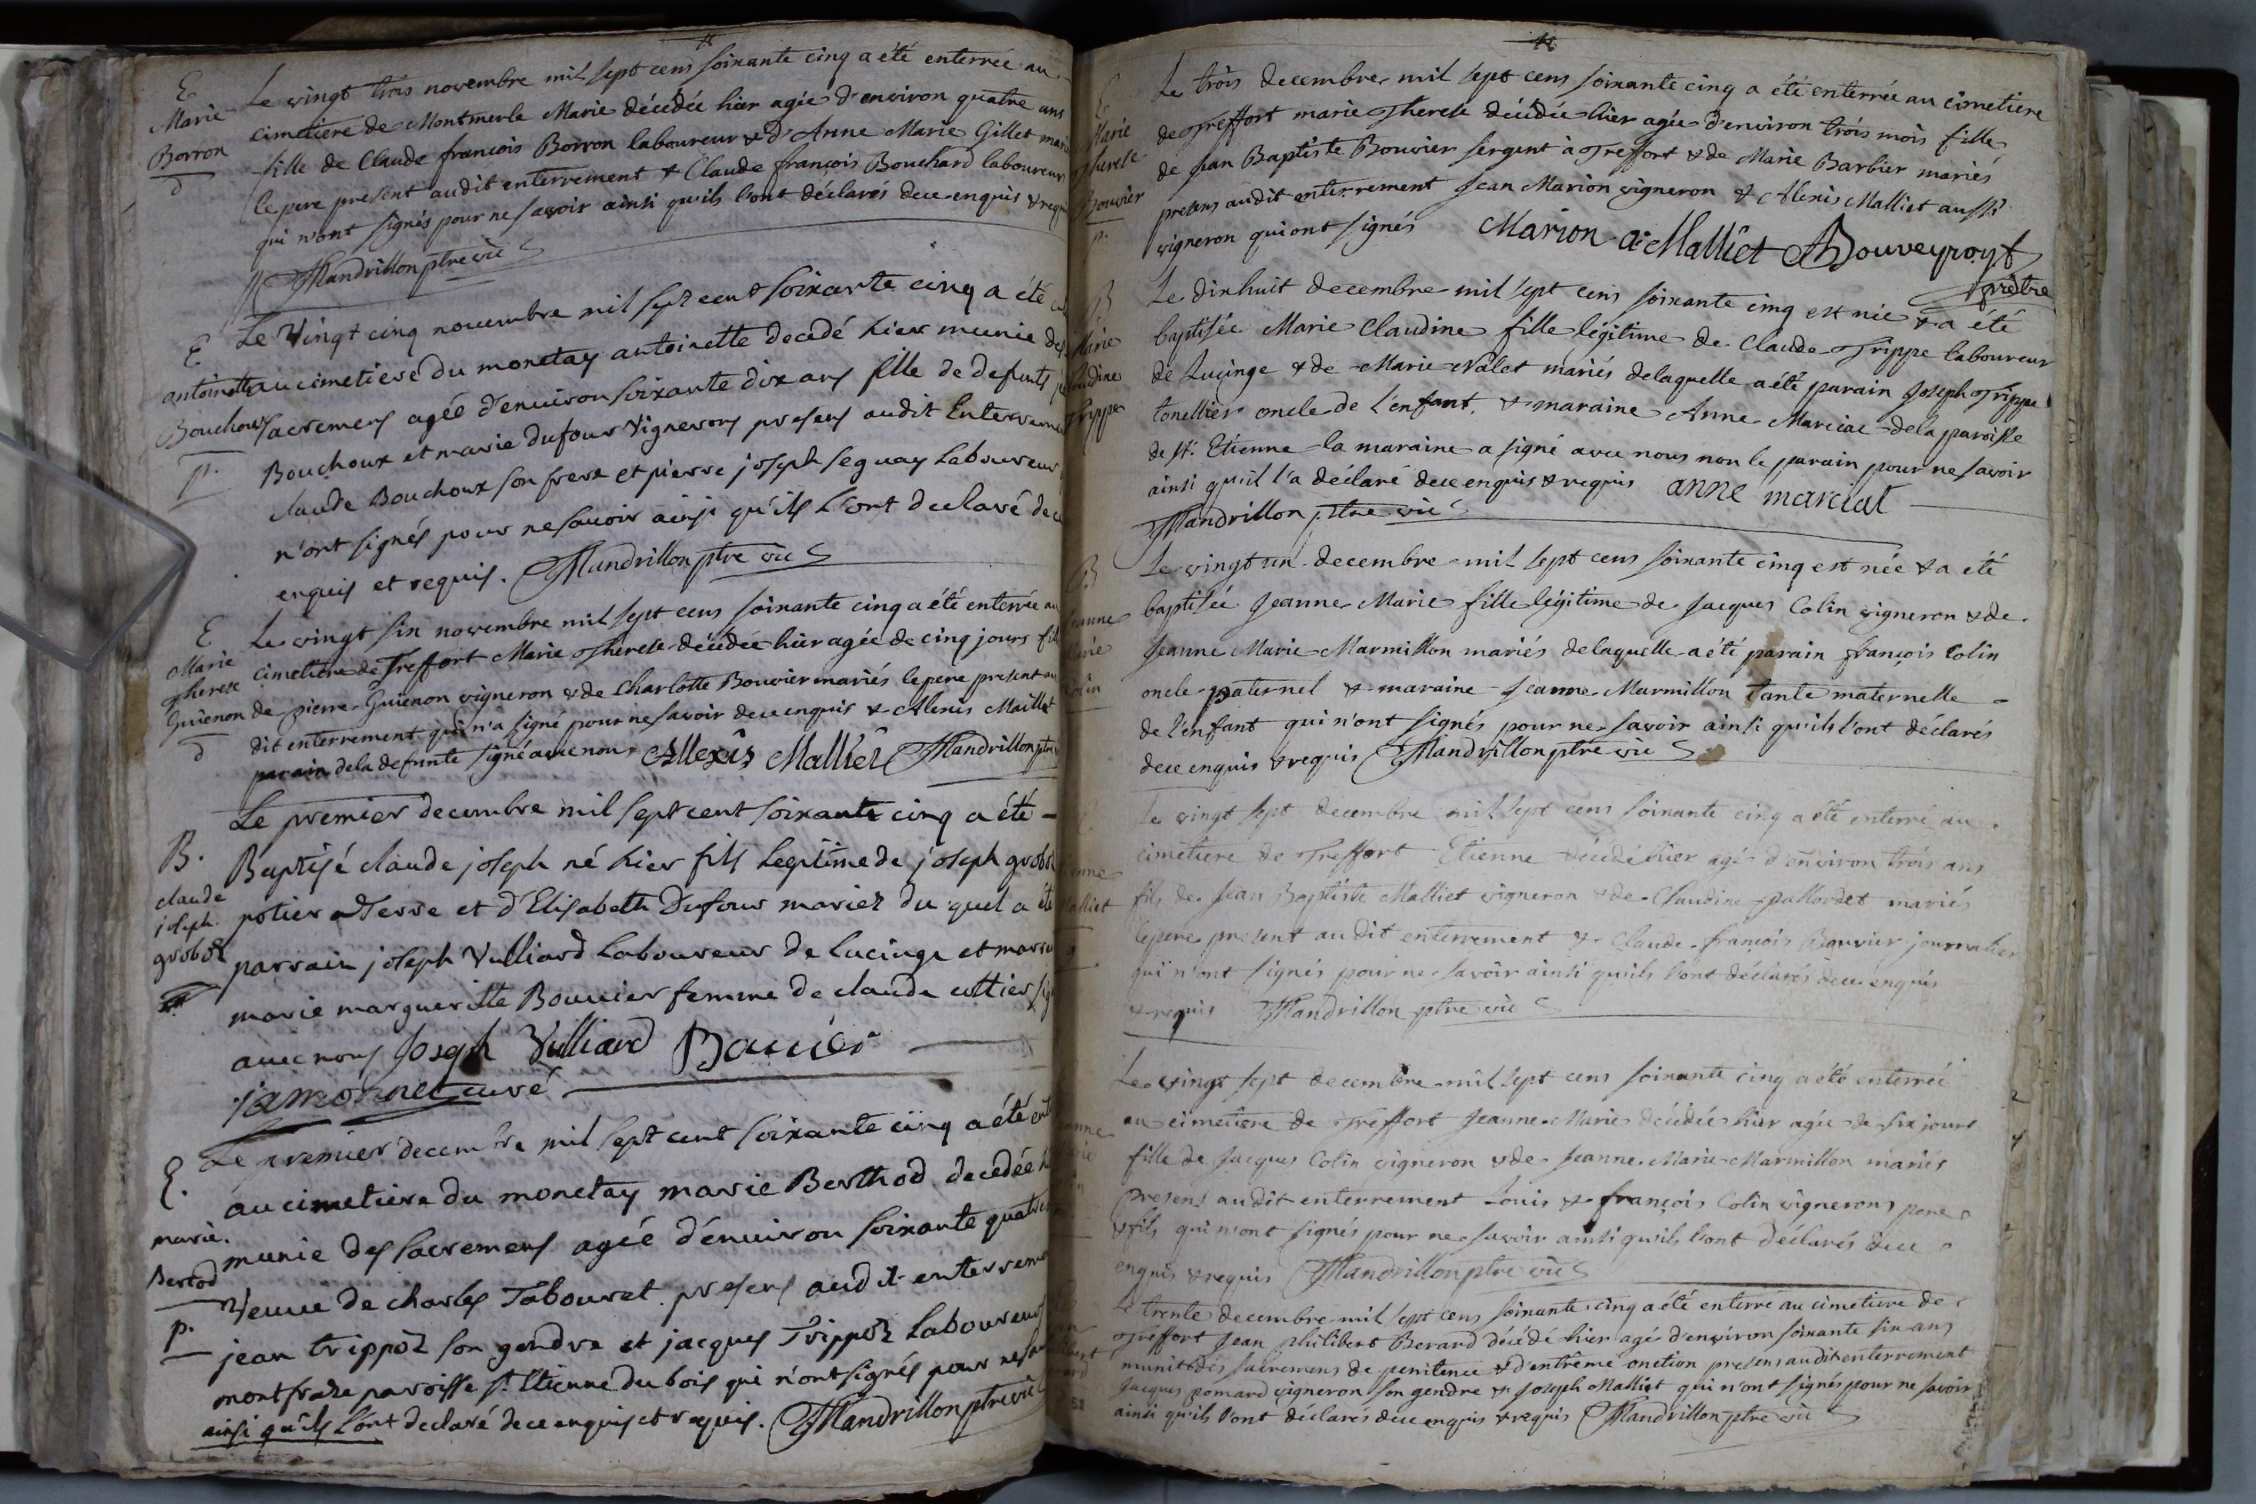 E
Marie
Borron
d
Le vingt trois novembre mil sept cens soixante cinq a été enterrée au
cimetiere de Montmerle Marie décédée hier agée d'environ quatre ans
fille de Claude françois Borron laboureur & d'Anne Marie Gillet mari
le pere present audit enterrement & Claude françois Bouchard laboureur
qui n'ont signés pour ne savoir ainsi qu'ils l'ont déclarés dece enquis & requ
Mandrillon ptre vic
E
antoinette
Bouchoux
p.
Le Vingt cinq novembre mil sept cent soixante cinq a été
au cimetiere du monetay antoinette decedé hier munie des
sacremens agée d'environ soixante dix ans fille de defunts
Bouchoux et marie dufour Vignerons presens audit Enterreme
claude Bouchoux son frere et pierre joseph seguay Laboureur
n'ont signés pour ne savoir ainsi qu'ils l'ont declaré de ce
enquis et requis. Mandrillon ptre vic
E
Marie
Therese
Guienon
d
Le vingt six novembre mil sept cens soixante cinq a été enterrée au
cimetiere de Treffort Marie Therese décédée hier agée de cinq jours fil
de pierre Guienon vigneron & de Charlotte Bouvier mariés le pere present au
dit enterrement qui n'a signé pour ne savoir dece enquis & Alexis Malliet
parain de la defunte signé avec nous Allexis Malliet Mandrillon ptre
B.
claude
joseph
groboz
Le premier decembre mil sept cent soixante cinq a été
Baptisé claude joseph né hier fils Legitime de joseph grobo
potier a Terre et d'Elisabeth Dufour mariez du quel a été
parrain joseph Vulliard Laboureur de Lucinge et marra
marie margueritte Bouvier femme de claude cottier sig
avec nous Joseph Vulliard Bouvier
jamonet curé
E.
marie
Bertod
p.
Le premier decembre mil sept cent soixante cinq a été ent
au cimetiere du monetay marie Berthod decedée h
munie des sacremens agée d'environ soixante quatre
Veuve de charles Tabouret presens audit enterreme
jean trippoz son gendre et jacques Trippoz Laboureur
montfraze paroisse st Etienne du bois qui n'ont signés pour ne sa
ainsi qu'ils l'ont declaré dece enquis et requis. Mandrillon ptre vic
E
Marie
Therese
Bouvier
p.
Le trois decembre mil sept cens soixante cinq a été enterrée au cimetiere
de Treffort marie Therese décédée hier agée d'environ trois mois fille
de Jean Baptiste Bouvier sergent à Treffort & de Marie Barbier mariés
presens audit enterrement Jean Marion vigneron & Alexis Malliet aussi
vigneron qui ont signés Marion A Malliet Bouveyroyt
prêtre
B
Marie
Claudine
Trippe
Le dixhuit decembre mil sept cens soixante cinq est née & a été
baptisée Marie Claudine fille légitime de Claude Trippe laboureur
de Luçinge & de Marie Nalet mariés de laquelle a été parain Joseph Trippe
tonellier oncle de l'enfant, & maraine Anne Marciac de la paroisse
de st. Etienne la maraine a signé avec nous non le parain pour ne savoir
ainsi qu'il l'a déclaré dece enquis & requis anne marciat
Mandrillon ptre vic
B
Jeanne
Marie
Colin
Le vingt un decembre mil sept cens soixante cinq est née & a été
baptisée Jeanne Marie fille légitime de Jacques Colin vigneron & de
Jeanne Marie Marmillon mariés de laquelle a été parain françois Colin
oncle paternel & maraine Jeanne Marmillon tante maternelle
de l'enfant qui n'ont signés pour ne savoir ainsi qu'ils l'ont déclarés
dece enquis & requis Mandrillon ptre vic
enne
Malliet
Le vingt sept decembre mil sept cens soixante cinq a été enterré au
cimetiere de Treffort Etienne décédé hier agé d'environ trois ans
fils de Jean Baptiste Malliet vigneron & de Claudine pallordet mariés
le pere present audit enterrement & Claude françois Bouvier journalier
qui n'ont signés pour ne savoir ainsi qu'ils l'ont déclarés dece enquis
& requis Mandrillon ptre vic
Le vingt sept decembre mil sept cens soixante cinq a été enterrée
au cimetiere de Treffort Jeanne Marie décédée hier agée de six jours
fille de Jacques Colin vigneron & de Jeanne Marie Marmillon mariés
Presens audit enterrement Louis & françois Colin vignerons pere
& fils qui n'ont signés pour ne savoir ainsi qu'ils l'ont déclarés dece
enquis & requis Mandrillon ptre vic
Le trente decembre mil sept cens soixante cinq a été enterré au cimetiere de
Treffort Jean philibert Berard décédé hier agé d'environ soixante six ans
munit des sacremens de penitence & d'entrême onction presens audit enterrement
Jacques pomard vigneron son gendre & Joseph Malliet qui n'ont signés pour ne savoir
ainsi qu'ils l'ont déclarés dece enquis & requis Mandrillon ptre vic